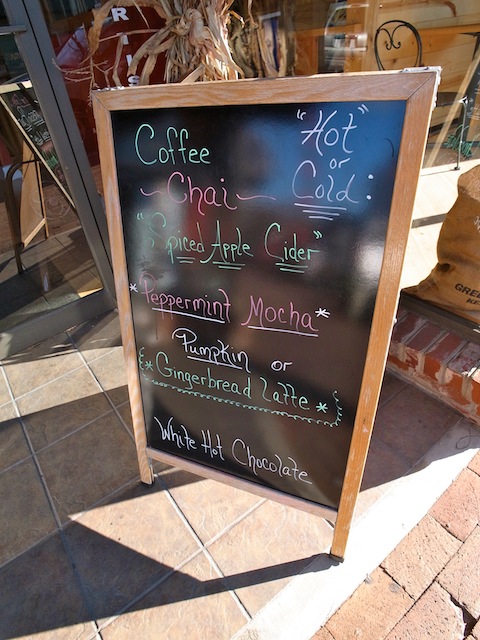 "Hot"
or
Cold:
Coffee
~Chai~
"Spiced Apple Cider"
*Peppermint Mocha*
Pumpkin or
*Gingerbread Latte*
White Hot Chocolate
GREE